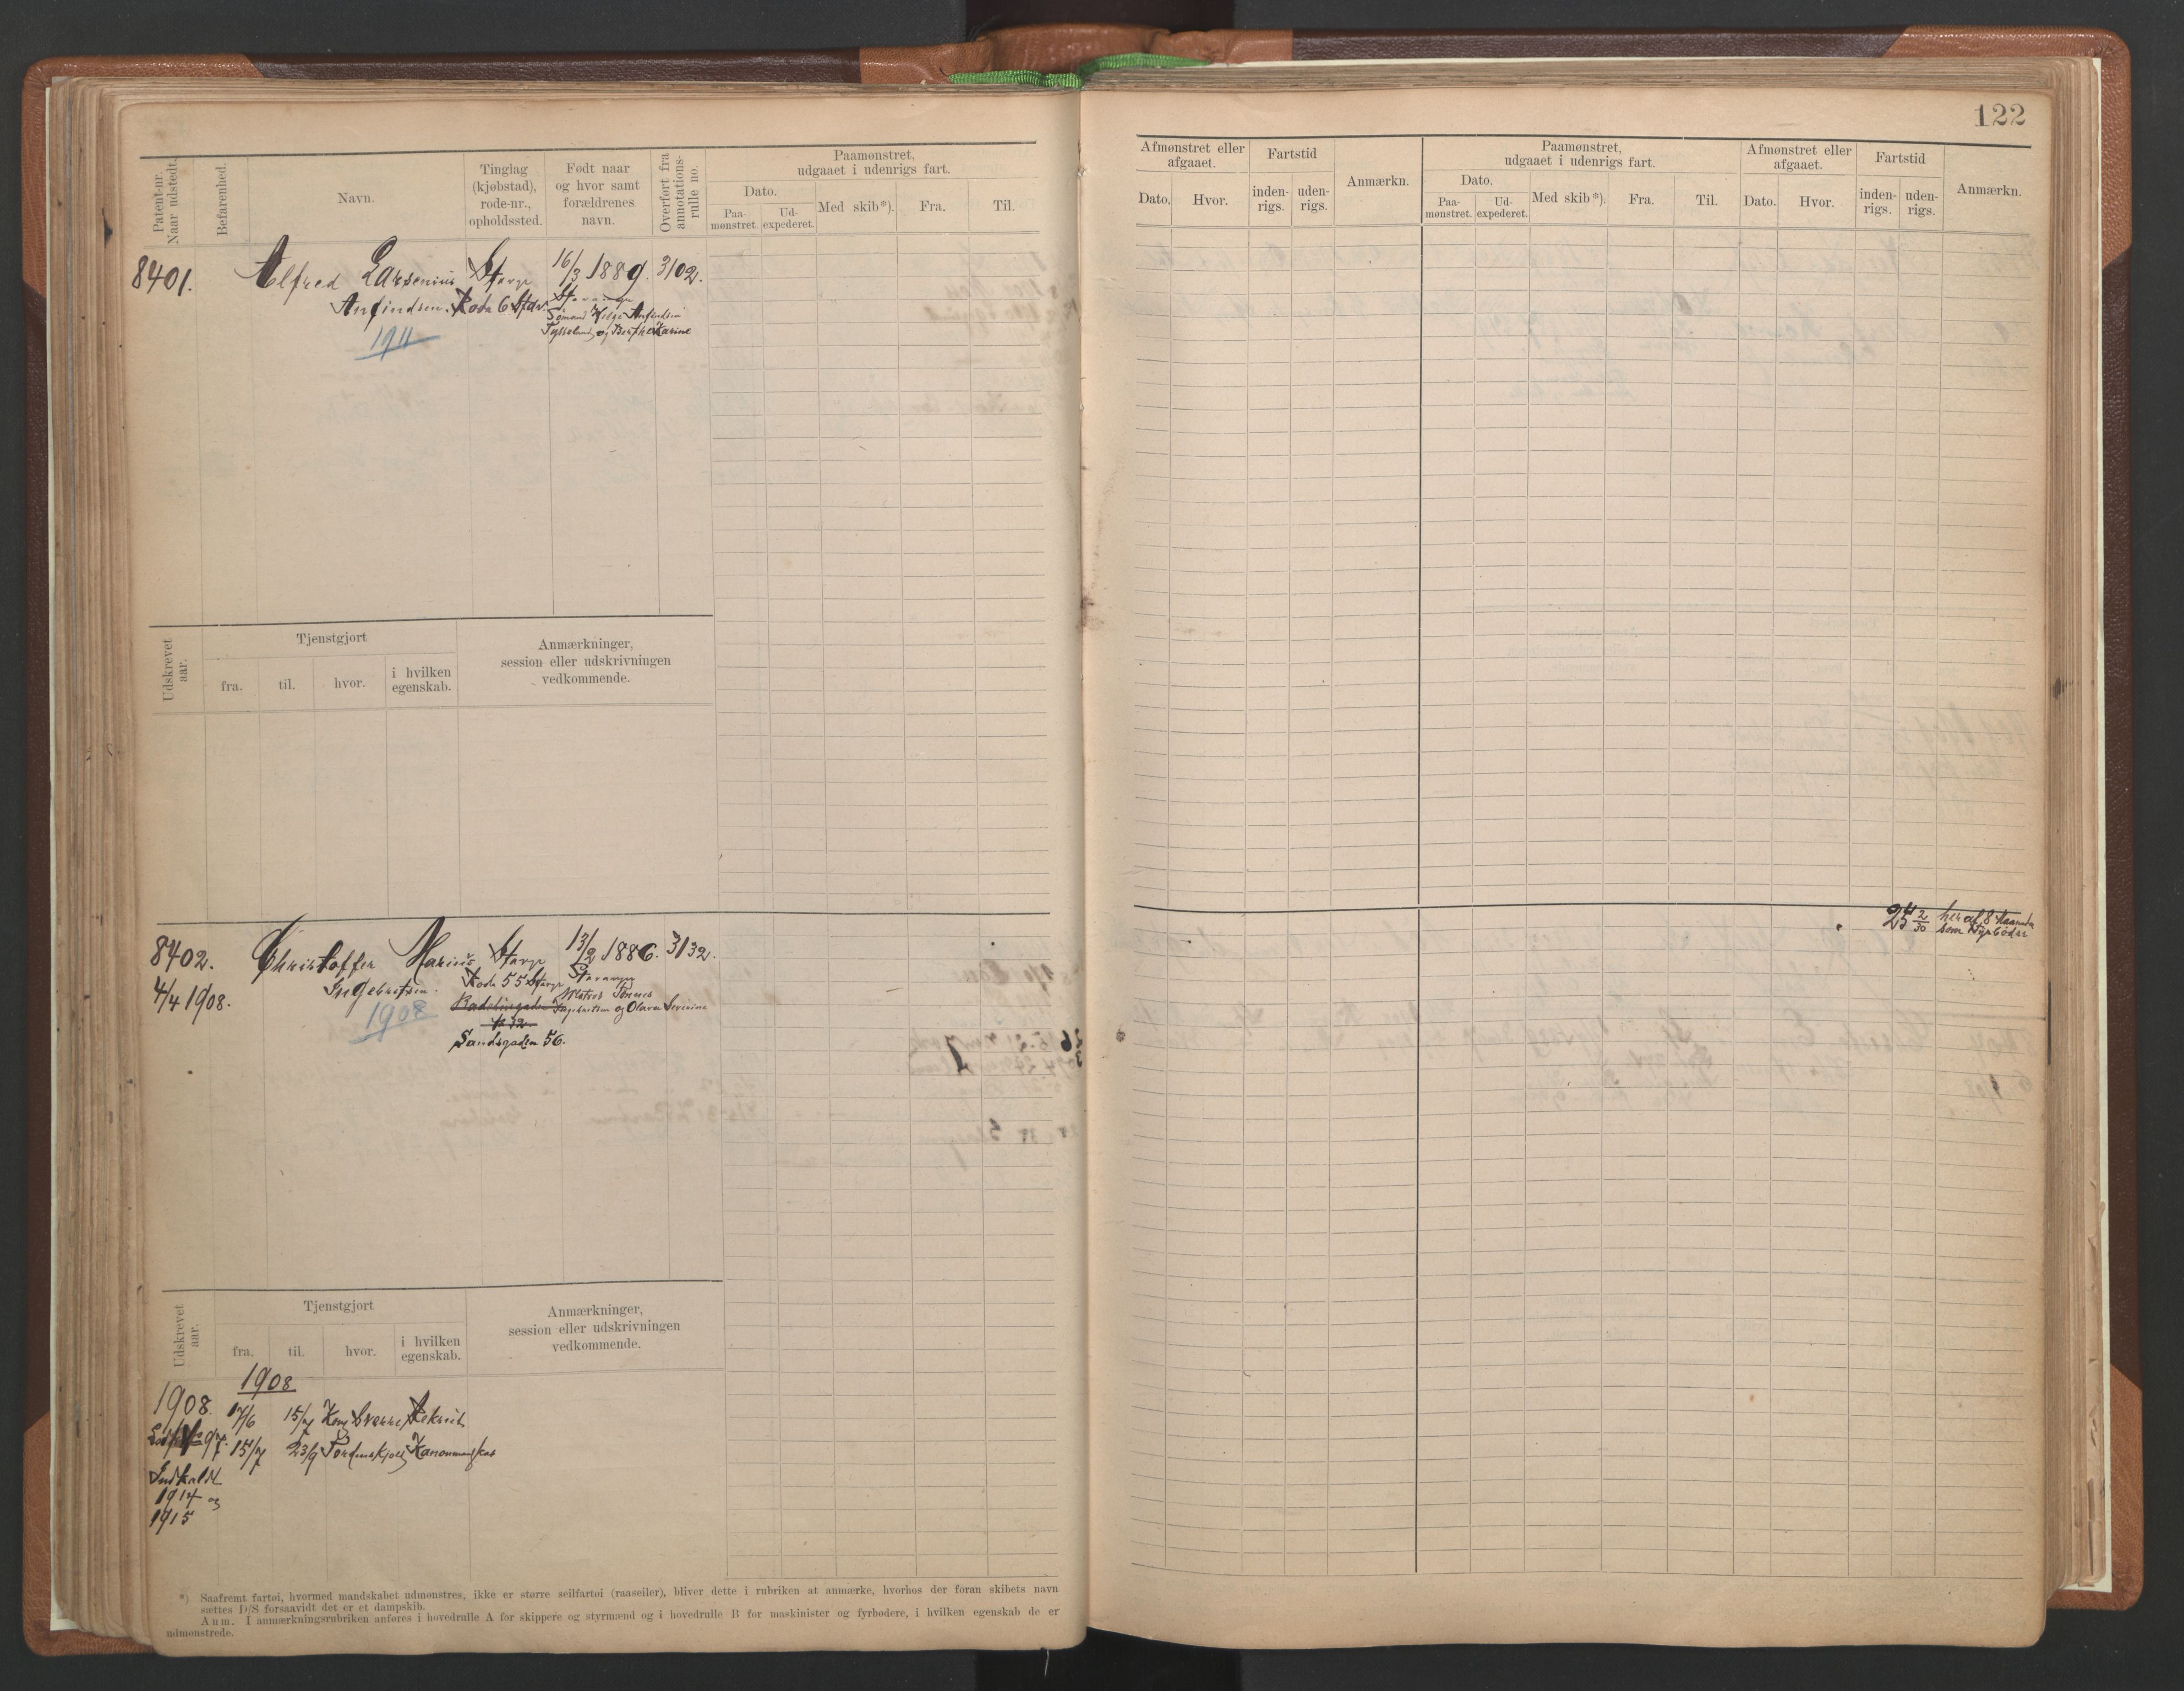 122
Patent-nr.
Naar udstedt.
Befarenhed.
Navn.
Tinglag
(kjøbstad),
rode-nr.,
opholdssted.
Født naar
og hvor samt
forældrenes
navn.
Overført fra
annotations-
rulle no.
Paamønstret,
udgaaet i udenrigs fart.
Dato.
Paa-
mønstret.
Ud-
expederet.
Med skib*).
Fra.
Til.
Afmønstret eller
afgaaet.
Dato.
Hvor.
Fartstid
inden-
rigs.
uden-
rigs.
Anmærkn.
Paamønstret,
udgaaet i udenrigs fart.
Dato.
Paa-
mønstret.
Ud-
expederet.
Med skib*).
Fra.
Til.
Afmønstret eller
afgaaet.
Dato.
Hvor.
Fartstid
inden-
rigs.
uden-
rigs.
Anmærkn.
8401. Alfred Larsenius Stavgr 16/3 1889. 3102.
Anfindsen. Rode 6 Stav.
Sømand Helge Anfindsen
og Berthe Karine
1911
Udskrevet
aar.
Tjenstgjort
fra.
til.
hvor.
i hvilken
egenskab.
Anmærkninger,
session eller udskrivningen
vedkommende.
8402. Christoffer Marius Stavgr 13/2 1886. 3132.
4/4 1908.
Ingebretsen.
Rode 55 Stavgr
Stavanger
Matros Tønnes
Ingebretsen og Olava Severine
1908
Sandsgaden 56.
24 2/30 heraf 8 Maaneder
som Fyrbøder
Udskrevet
aar.
Tjenstgjort
fra.
til.
hvor.
i hvilken
egenskab.
Anmærkninger,
session eller udskrivningen
vedkommende.
1908
1908. 17/6 15/7 Kong Sverre Rekrut
15/7 23/9 Tordenskjold Kanonmandskab
Indkaldt
1914 og
1915
*) Saafremt fartøi, hvormed mandskabet udmønstres, ikke er større seilfartøi (raaseiler), bliver dette i rubriken at anmærke, hvorhos der foran skibets navn
sættes D/S forsaavidt det er et dampskib.
Anm. I anmærkningsrubriken anføres i hovedrulle A for skippere og styrmænd og i hovedrulle B for maskinister og fyrbødere, i hvilken egenskab de er
udmønstrede.